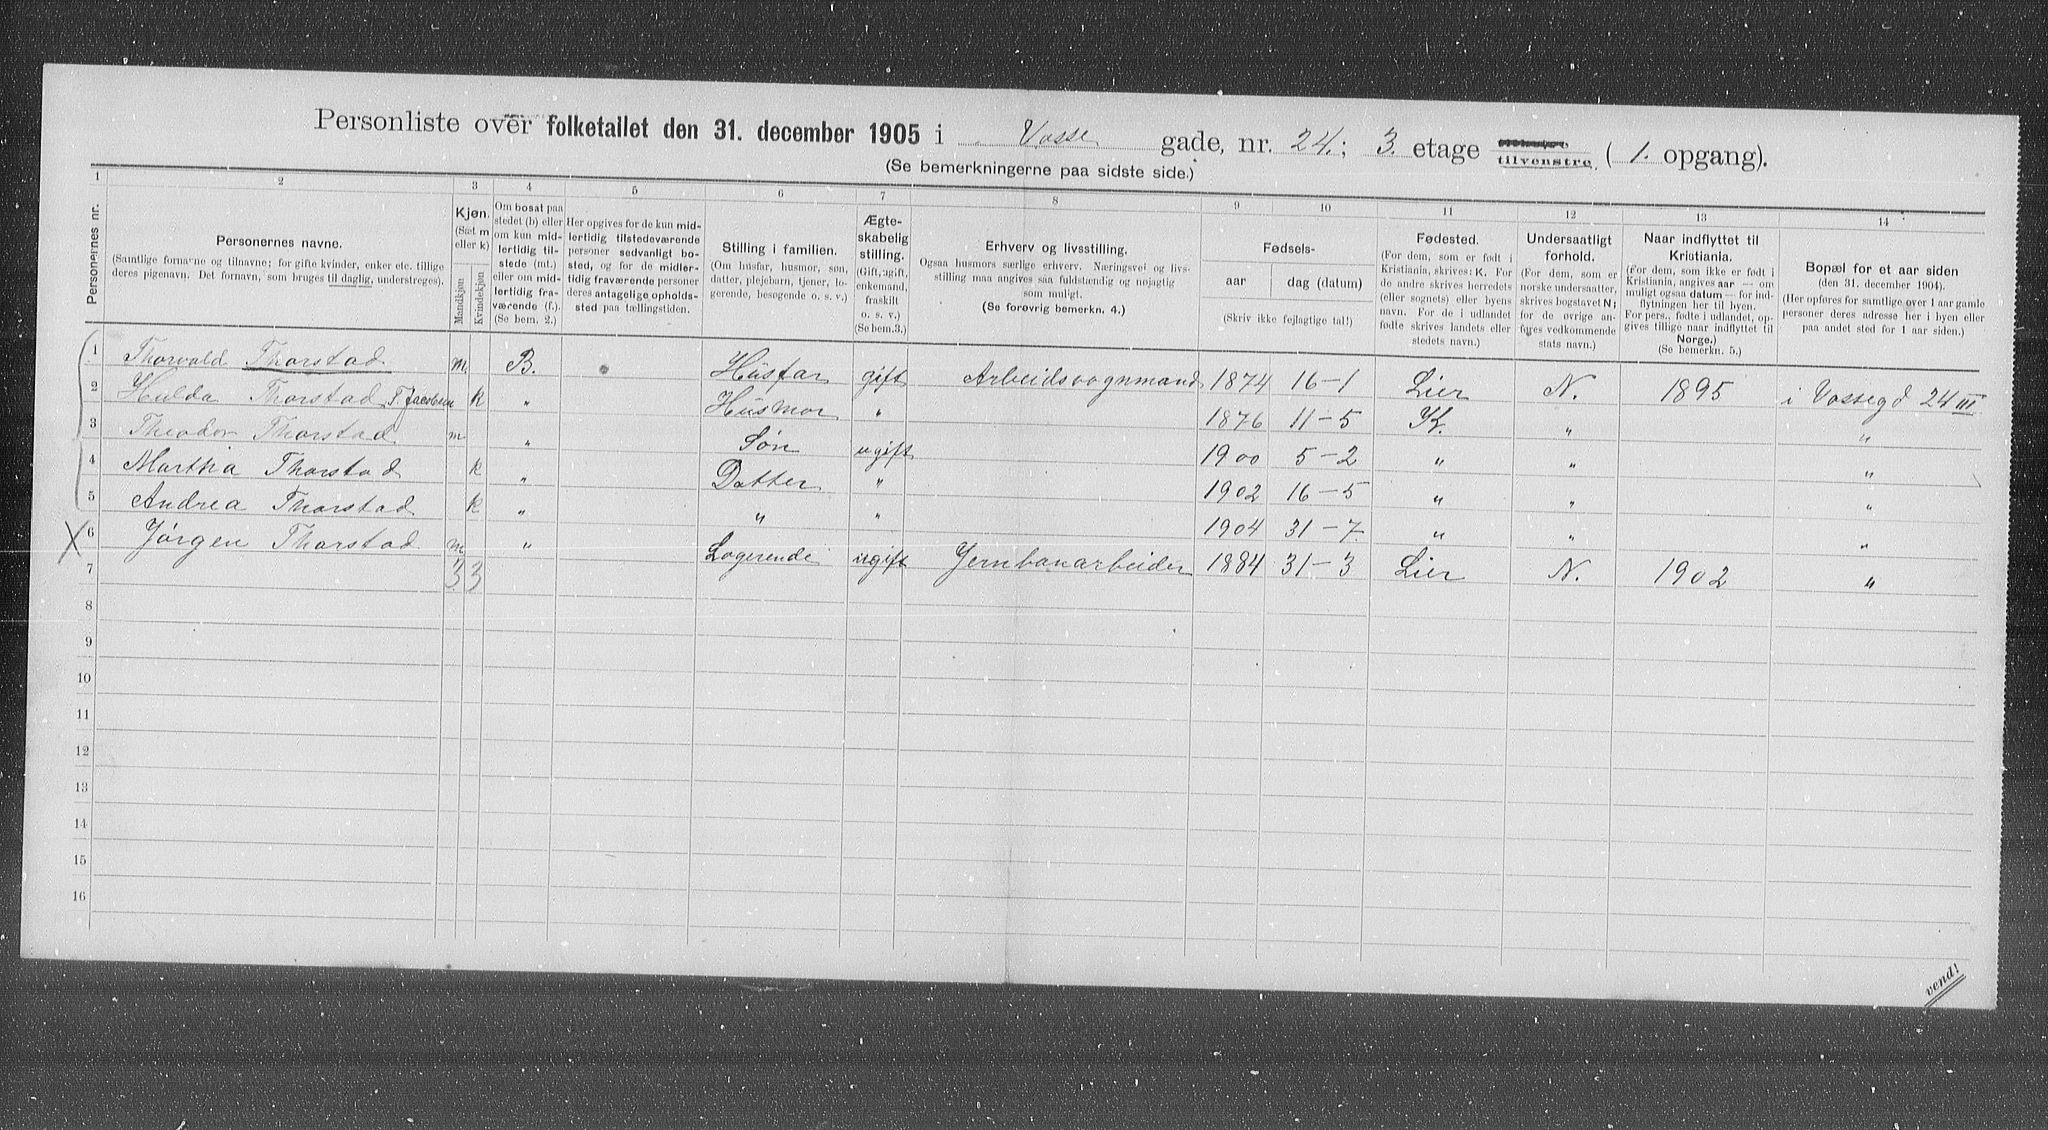 Personliste over folketallet den 31. december 1905 i Vosse gade, nr. 24.; 3. etage tilvenstre (1. opgang).
(Se bemerkningerne paa sidste side.)
1 2 3 4 5 6 7 8 9 10 11 12 13 14
Personernes nr.
Personernes navne.
(Samtlige fornavne og tilnavne; for gifte kvinder, enker etc. tillige
deres pigenavn. Det fornavn, som bruges til daglig, understreges).
Kjøn.
(Sæt m
eller k)
Mandkjøn
Kvindekjøn
Om bosat paa
stedet (b) eller
om kun mid-
lertidig til-
stede (mt.)
eller om mid-
lertidig fra-
værende (f.).
(Se bem. 2.)
Her opgives for de kun mid-
lertidig tilstedeværende
personer sedvanlig bo-
sted, og for de midler-
tidig fraværende personer
deres antagelige opholds-
sted paa tællingstiden.
Stilling i familien.
(Om husfar, husmor, søn,
datter, plejebarn, tjener, lo-
gerende, besøgende o. s. v.)
Ægte-
skabelig
stilling.
(Gift, ugift,
enkemand,
fraskilt
o. s. v.)
(Se bem.3.)
Erhverv og livsstilling.
Ogsaa husmors særlige erhverv. Næringsvei og livs-
stilling maa angives saa fuldstændig og nøjagtig
som muligt.
(Se forøvrig bemerkn. 4.)
Fødsels-
aar dag (datum)
(Skriv ikke fejlagtige tal!)
Fødested.
(For dem, som er født i
Kristiania, skrives: K. For
de andre skrives herredets
(eller sognets) eller byens
navn. For de i udlandet
fødte skrives landets eller
stedets navn.)
Undersaatligt
forhold.
(For dem, som er
norske undersaatter,
skrives bogstavet N;
for de øvrige an-
føres vedkommende
stats navn.)
Naar indflyttet til
Kristiania.
(For dem, som ikke er født i
Kristiania, angives aar — om
muligt ogsaa datum — for ind-
flytningen her til byen.
For pers., fødte i udlandet, op-
gives tillige naar indflyttet til
Norge.)
(Se bemerkn. 5.)
Bopæl for et aar siden
(den 31. december 1904).
(Her opføres for samtlige over 1 aar gamle
personer deres adresse her i byen eller
paa andet sted for 1 aar siden.)
1 Thorvald Thorstad m B. Husfar gift Arbeidsvognmand 1874 16-1 Lier N. 1895 i Vossegd 24 III
2 Hulda Thorstad f Jacobsen k " Husmor " 1876 11-5 K. " "
3 Theodor Thorstad m " Søn ugift 1900 5-2 " " "
4 Martha Thorstad k " Datter " 1902 16-5 " " "
5 Andrea Thorstad k " " " 1904 31-7 " " "
X 6 Jørgen Thorstad m " Logerende ugift Jernbanarbeider 1884 31-3 Lier N. 1902 "
7 3 3
8
9
10
11
12
13
14
15
16
vend!